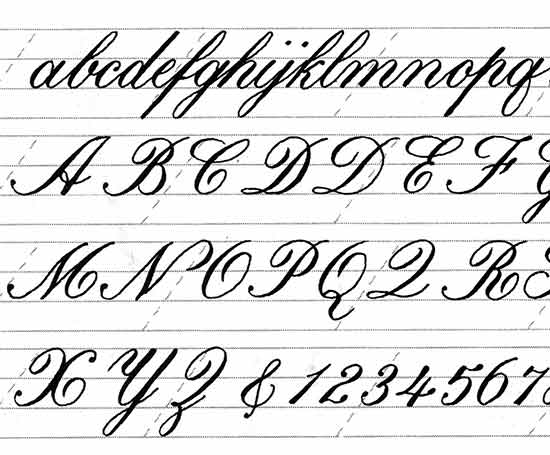 abcdefghijklmnopq
A B C D D E F
M N O P Q Q R
X Y Z & 1234567